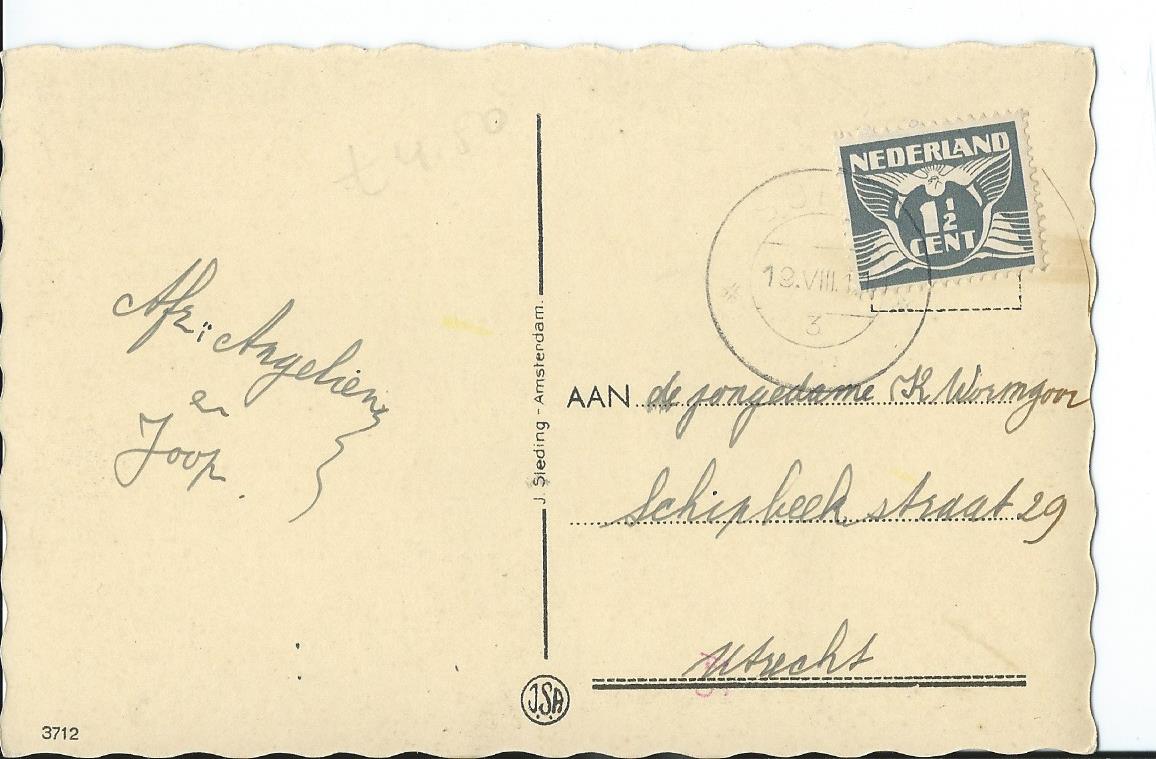 Afz: Angelien
en
Joop.
J. Sleding - Amsterdam.
J.S.A
3712
NEDERLAND
1½
CENT
19.VIII.1
3
AAN de jongedame K Wormgoor
Schipbeek straat 29
Utrecht